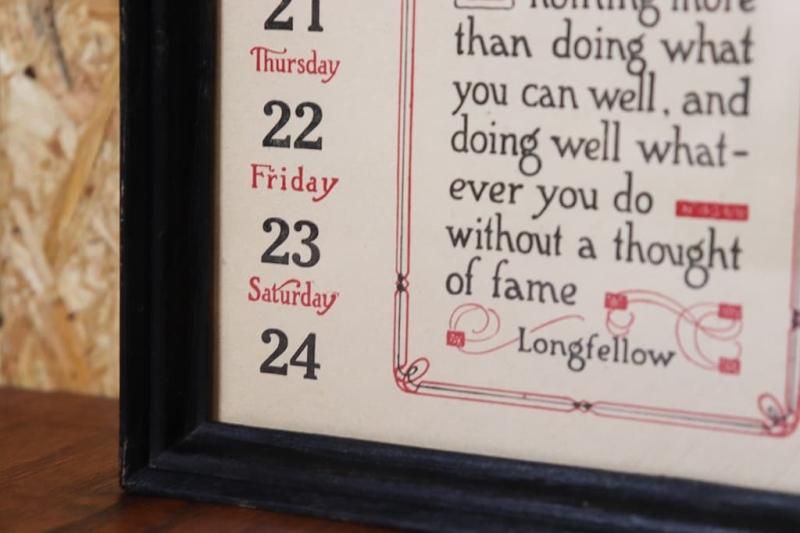 21
Thursday
22
Friday
23
Saturday
24
nothing more
than doing what
you can well, and
doing well what-
ever you do
without a thought
of fame
Longfellow